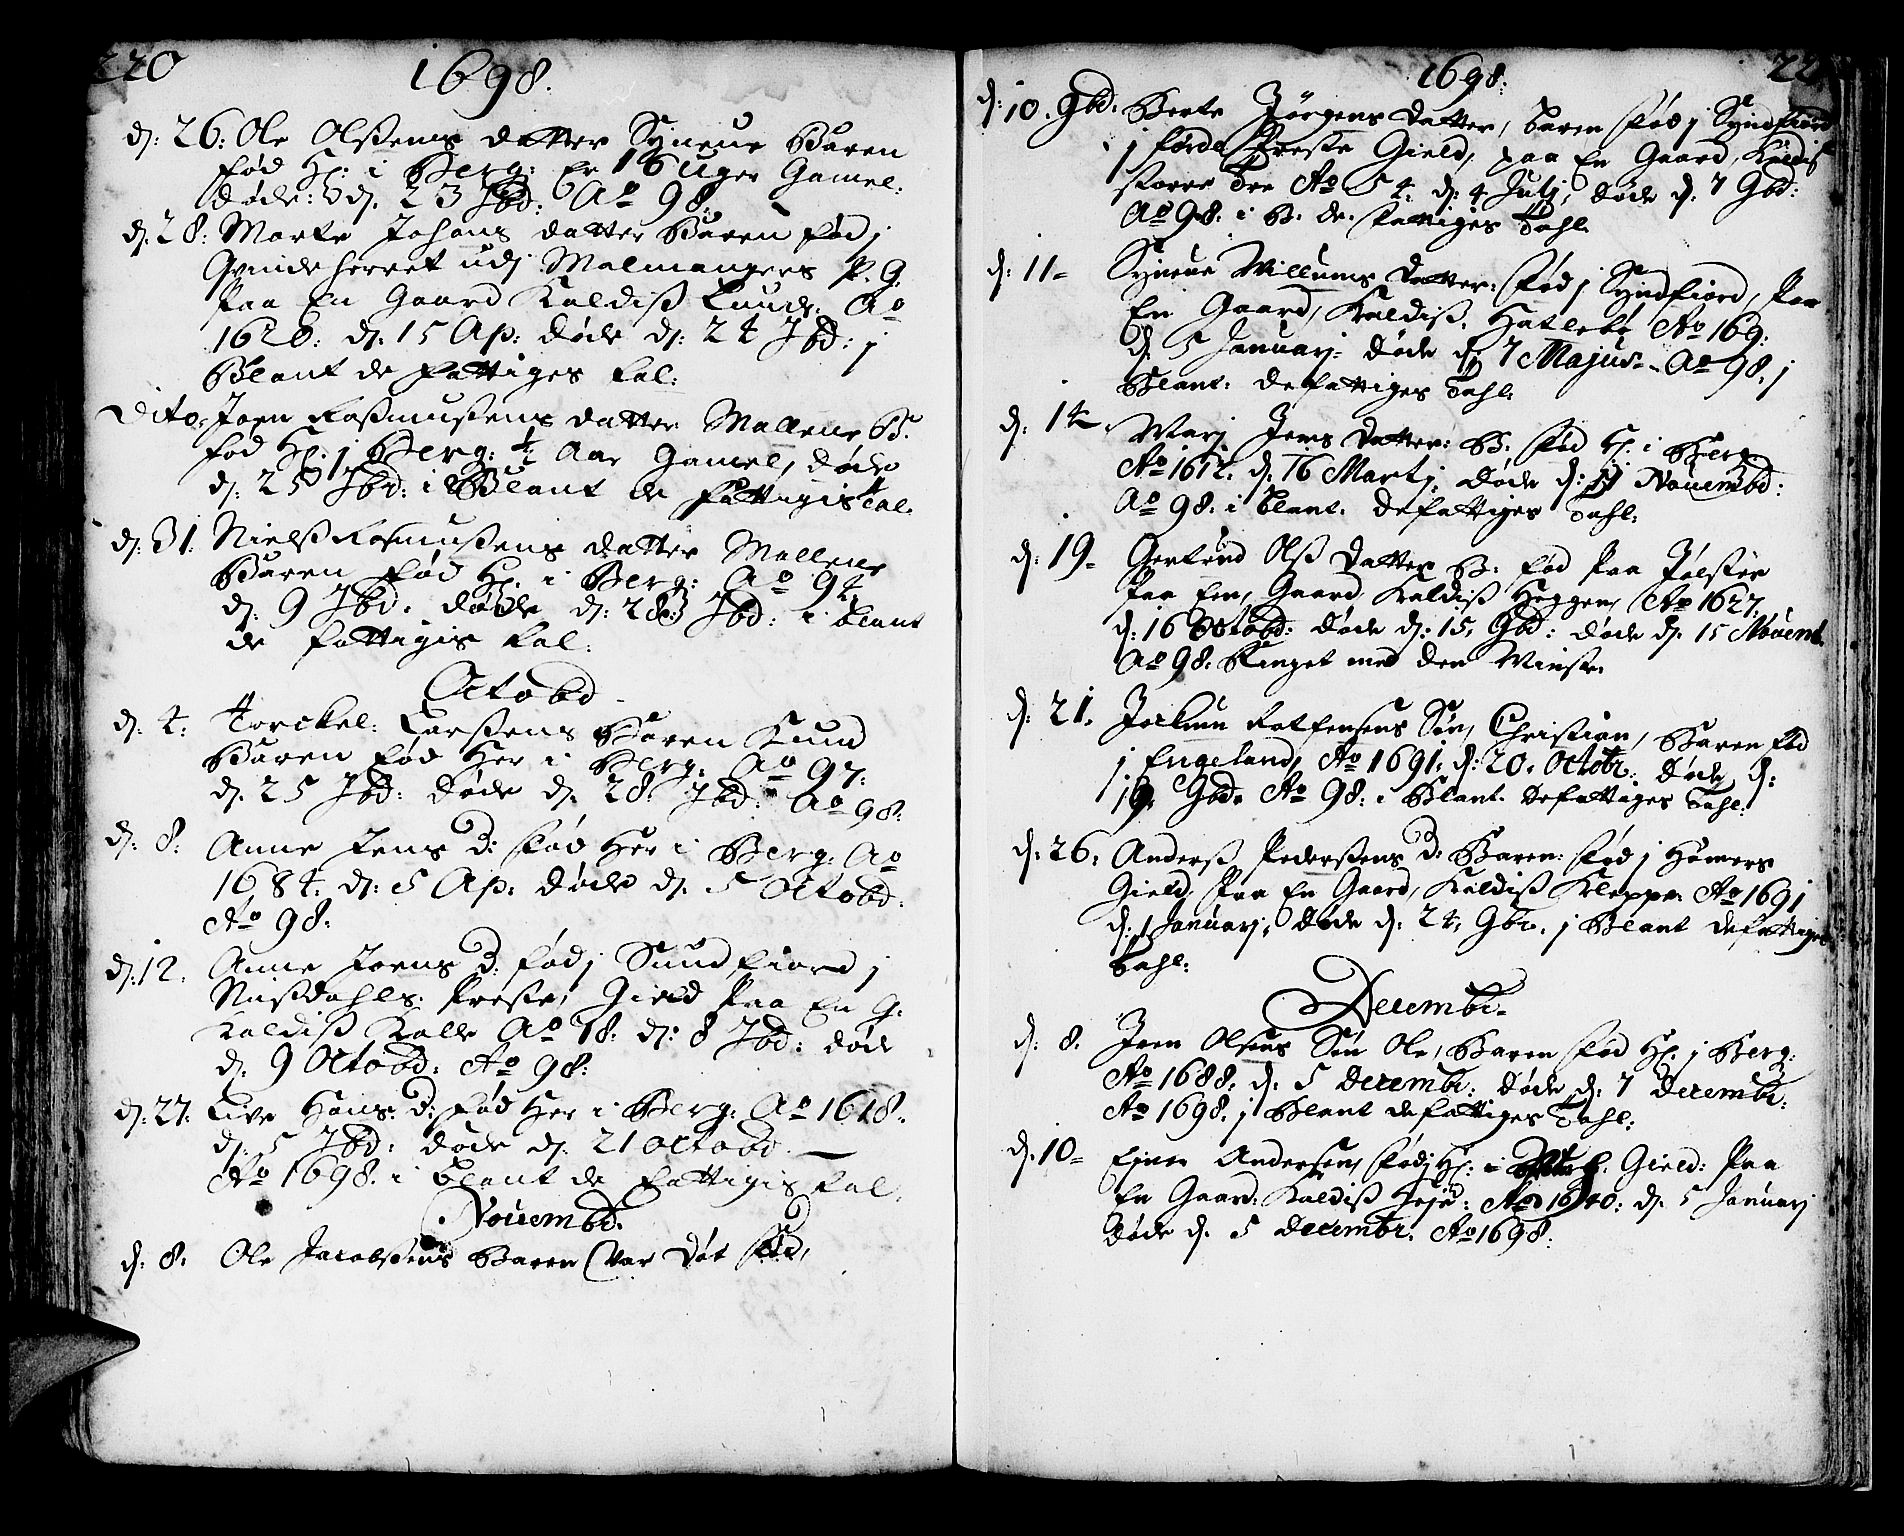 220
1698.
d: 26: Ole Olßens datter Syneue Baaren
fød H: i Berg: Er 16 Uger Gamel:
døde: d. 23 Jbd: Ao 98:
d. 28: Marte Johans datter Baaren fød j
Qvindeherret udj Malmangers P. G.
Paa En Gaard Kaldiß Luude: Ao
1626: d: 15 Ap: døde d: 24 Jbd: j
Blant de fattiges tal:
Dito: Joen Raßmußens datter Mallene B:
fød H: j Berg: ½ Aar Gamel, døde
d: 25 Jbd: i Blant de fattigis tal:
d: 31: Nielß Rasmußens datter Mallene
Baaren fød H: i Berg: Ao 94
d: 9 Jbd: døde d: 28 Jbd: i blant
de fattigis tal:
Octobd
d: 4: Torckel: Larßens Baren Knud
Baaren fød Her i Berg: Ao 97:
d. 25 Jbd: døde d. 28 Jbd: Ao 98:
d: 8: Anne Jens D: fød Her i Berg: Ao
1684: d: 5 Ap: døde d: 5 Octobd:
Ao 98:
d: 12. Anne Joens D: fød j Sundfiord j
Præste Gield Paa En G:
Kaldiß Kalle Ao 18: d: 8 Jbd: døde
d: 9 Octobd: Ao 98:
d: 27: Live Hans D: fød Her i Berg: Ao 1618.
d: 5 Jbd: døde d: 21 Octobd.
Ao 1698. i blant de fattigis tal.
Nouembd.
d: 8. Ole Jacobßens Baren var døt fød,
1698:
22
d: 10. Gbd: Berte Jørgens datter, baren fød j Syndfiord
j førde Præste Gield, paa En Gaard, Kaldiß
storre Tre Ao 54: d: 4 Julj, døde d: 7 Gbd:
Ao 98: i B. de fattiges Tahl.
d: 11- Syneue Willums datter: fød j Syndfiord, Paa
En Gaard, Kaldiß. Hatlebø Ao 169:
d 5 Januarj døde d: 7 Majus- Ao 98. j
Blant: de fattiges Tahl:
d: 14. Marj Jens datter: B: fød H: i Berg
Ao 1612: d: 16 Martj, døde d: 11 Nouembd:
Ao 98: i blant: de fattiges Tahl:
d: 19- Gertrud Olß datter B: fød Paa Jølster
Paa En, Gaard Kaldiß Heggen, Ao 1627.
d: 16 Octobd: døde d: 15, Gbd: døde d. 15 Nouemb.
Ao 98: Ringet med den Minste
d: 21. Søn, Christian, Baren fød
j Engeland, Ao 1691: d: 20, Octobr: døde, d:
19. Gbd. Ao 98: i Blant de fattiges Tahl:
d: 26: Anderß Pederßens D: Baren: fød j Hamers
Gield, Paa En Gaard, Kaldiß Kleppe Ao 1691
d: 1 Januarj, døde d: 24, Gbr. j Blant de fattiges
Tahl:
Decembr.
d: 8. Joen Olsens Søn Ole, Baren fød H: j Berg:
Ao 1688: d: 5 Decembr: døde d: 7 Decembr:
Ao 1698: j Blant de fattiges Tahl:
d: 10- Ejner Andersen, fød H: i Gield: Paa
En Gaard: Kaldiß: Ao 1640: d: 5 Januarj
døde d: 5 Decembr: Ao 1698: